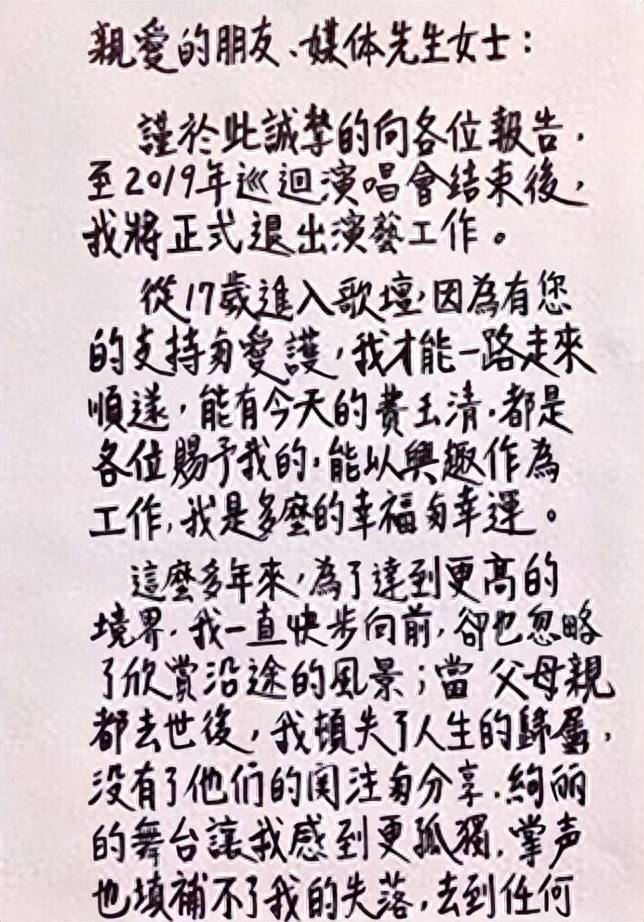 親愛的朋友、媒体先生女士：
謹於此誠摯的向各位報告，
至2019年巡迴演唱會结束後，
我將正式退出演藝工作。
從17歲進入歌壇，因為有您
的支持与愛護，我才能一路走來
順遂，能有今天的費玉清，都是
各位賜予我的，能以興趣作為
工作，我是多麼的幸福与幸運。
這麼多年來，為了達到更高的
境界，我一直快步向前，卻也忽略
了欣賞沿途的風景；當父母親
都去世後，我頓失了人生的歸屬，
没有了他们的関注与分享，絢丽
的舞台讓我感到更孤獨，掌声
也填補不了我的失落，去到任何